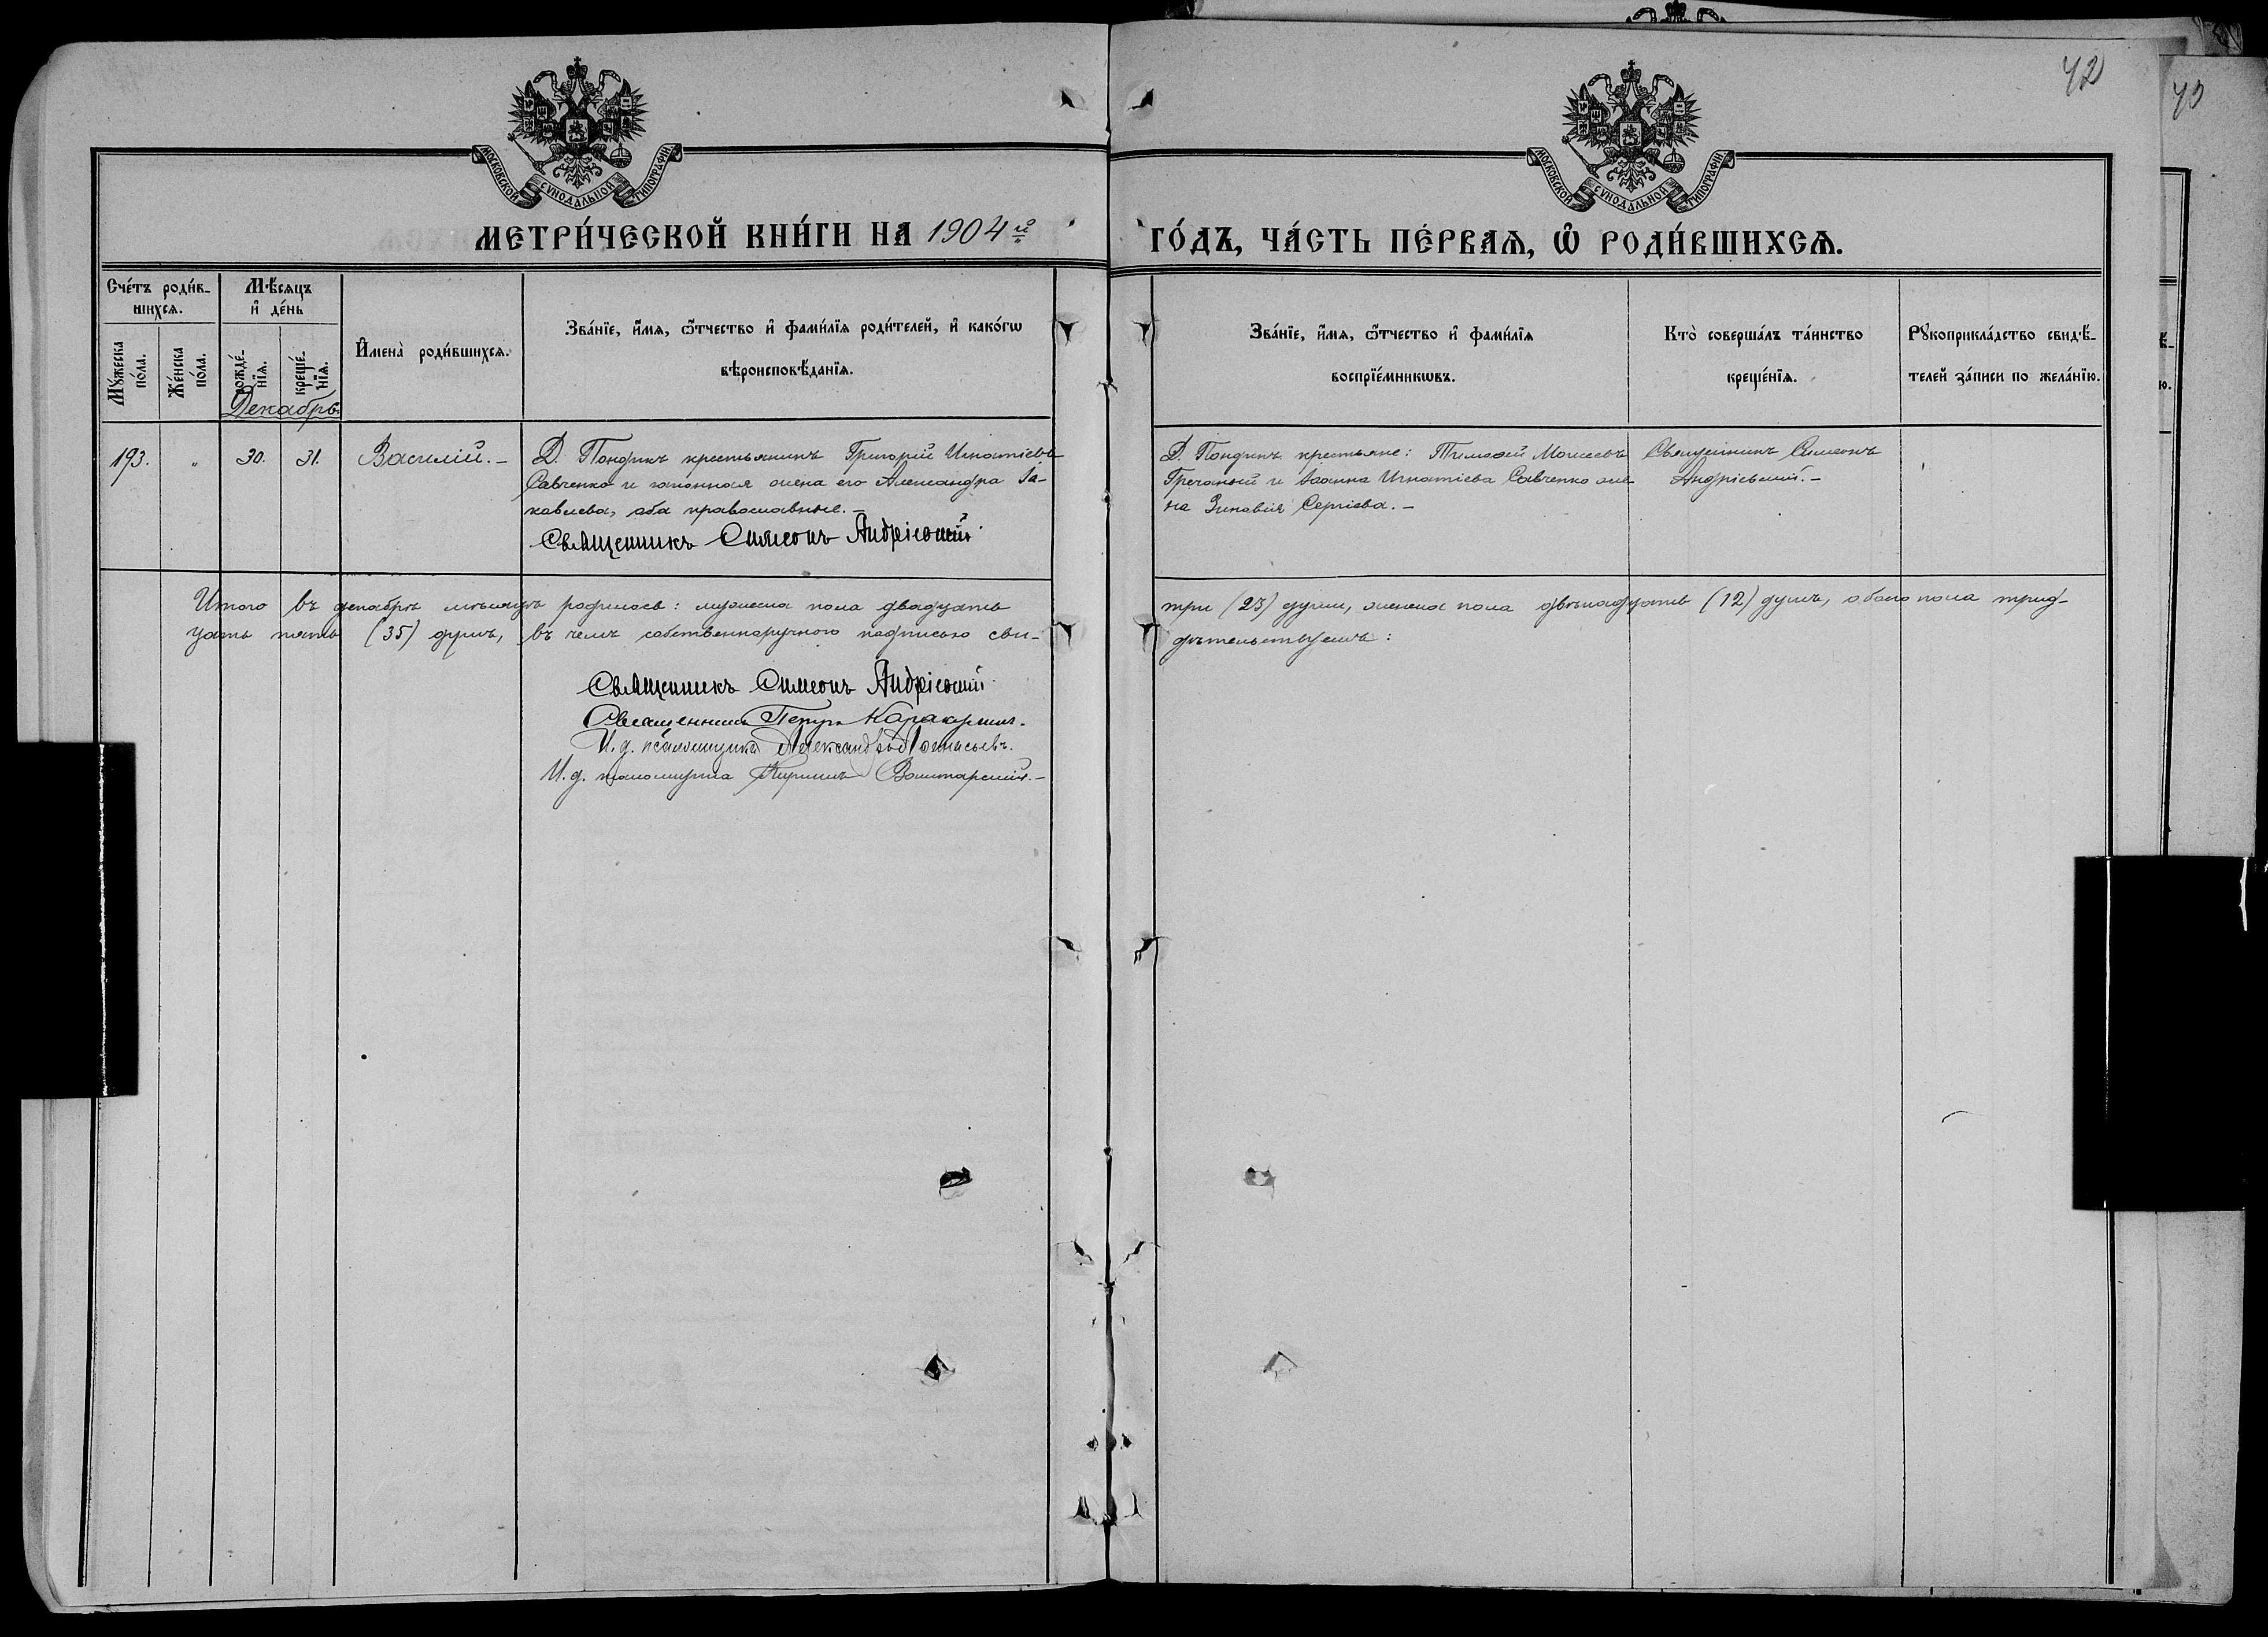 42
40
МОСКОВСКОЙ СѴНОДАЛЬНОЙ ТИПОГРАФІИ
МОСКОВСКОЙ СѴНОДАЛЬНОЙ ТИПОГРАФІИ
МЕТРИ́ЧЕСКОЙ КНИ́ГИ НА 1904й
ГО́ДЪ, ЧА́СТЬ ПЕ́РВАЯ, Ѽ РОДИ́ВШИХСЯ.
Сче́тъ роди́в-
шихся.
Мѣ́сяцъ
и҆ де́нь
Мꙋ́жеска
по́ла.
Же́нска
по́ла.
рожде́-
нїя.
креще́-
нїя.
Декабрь.
И҆мена̀ роди́вшихся.
Зва́нїе, и҆́мя, ѻ҆́тчество и҆ фами́лїя роди́телей, и҆ како́гѡ
вѣроисповѣ́данїя.
Зва́нїе, и҆́мя, ѻ҆́тчество и҆ фами́лїя
воспрїе́мникѡвъ.
Кто̀ соверша́лъ та́инство
креще́нїя.
Рꙋкоприкла́дство свидѣ́-
телей за́писи по жела́нїю.
193. " 30. 31. Василій.-
Д. Пондикъ крестьянинъ Григорій Игнатіевъ
Савченко и законная жена его Александра Іа-
ковлева, оба православные.-
Священникъ Симеонъ Андріевскій.
Д. Пондикъ крестьяне: Тимофей Моисеевъ
Гречаный и Іоанна Игнатіева Савченко же-
на Зиновія Сергіева.-
Священникъ Симеонъ
Андріевскій.-
Итого въ декабрѣ мѣсяцѣ родилось: мужеска пола двадцать
три (23) души, женска пола двѣнадцать (12) душъ, обоего пола трид-
цать пять (35) душъ, въ чемъ собственноручною подписью сви-
дѣтельствуемъ:
Священникъ Симеонъ Андріевскій
Священникъ Петръ
И. д. псаломщика Александръ
И. д. псаломщика Кириллъ